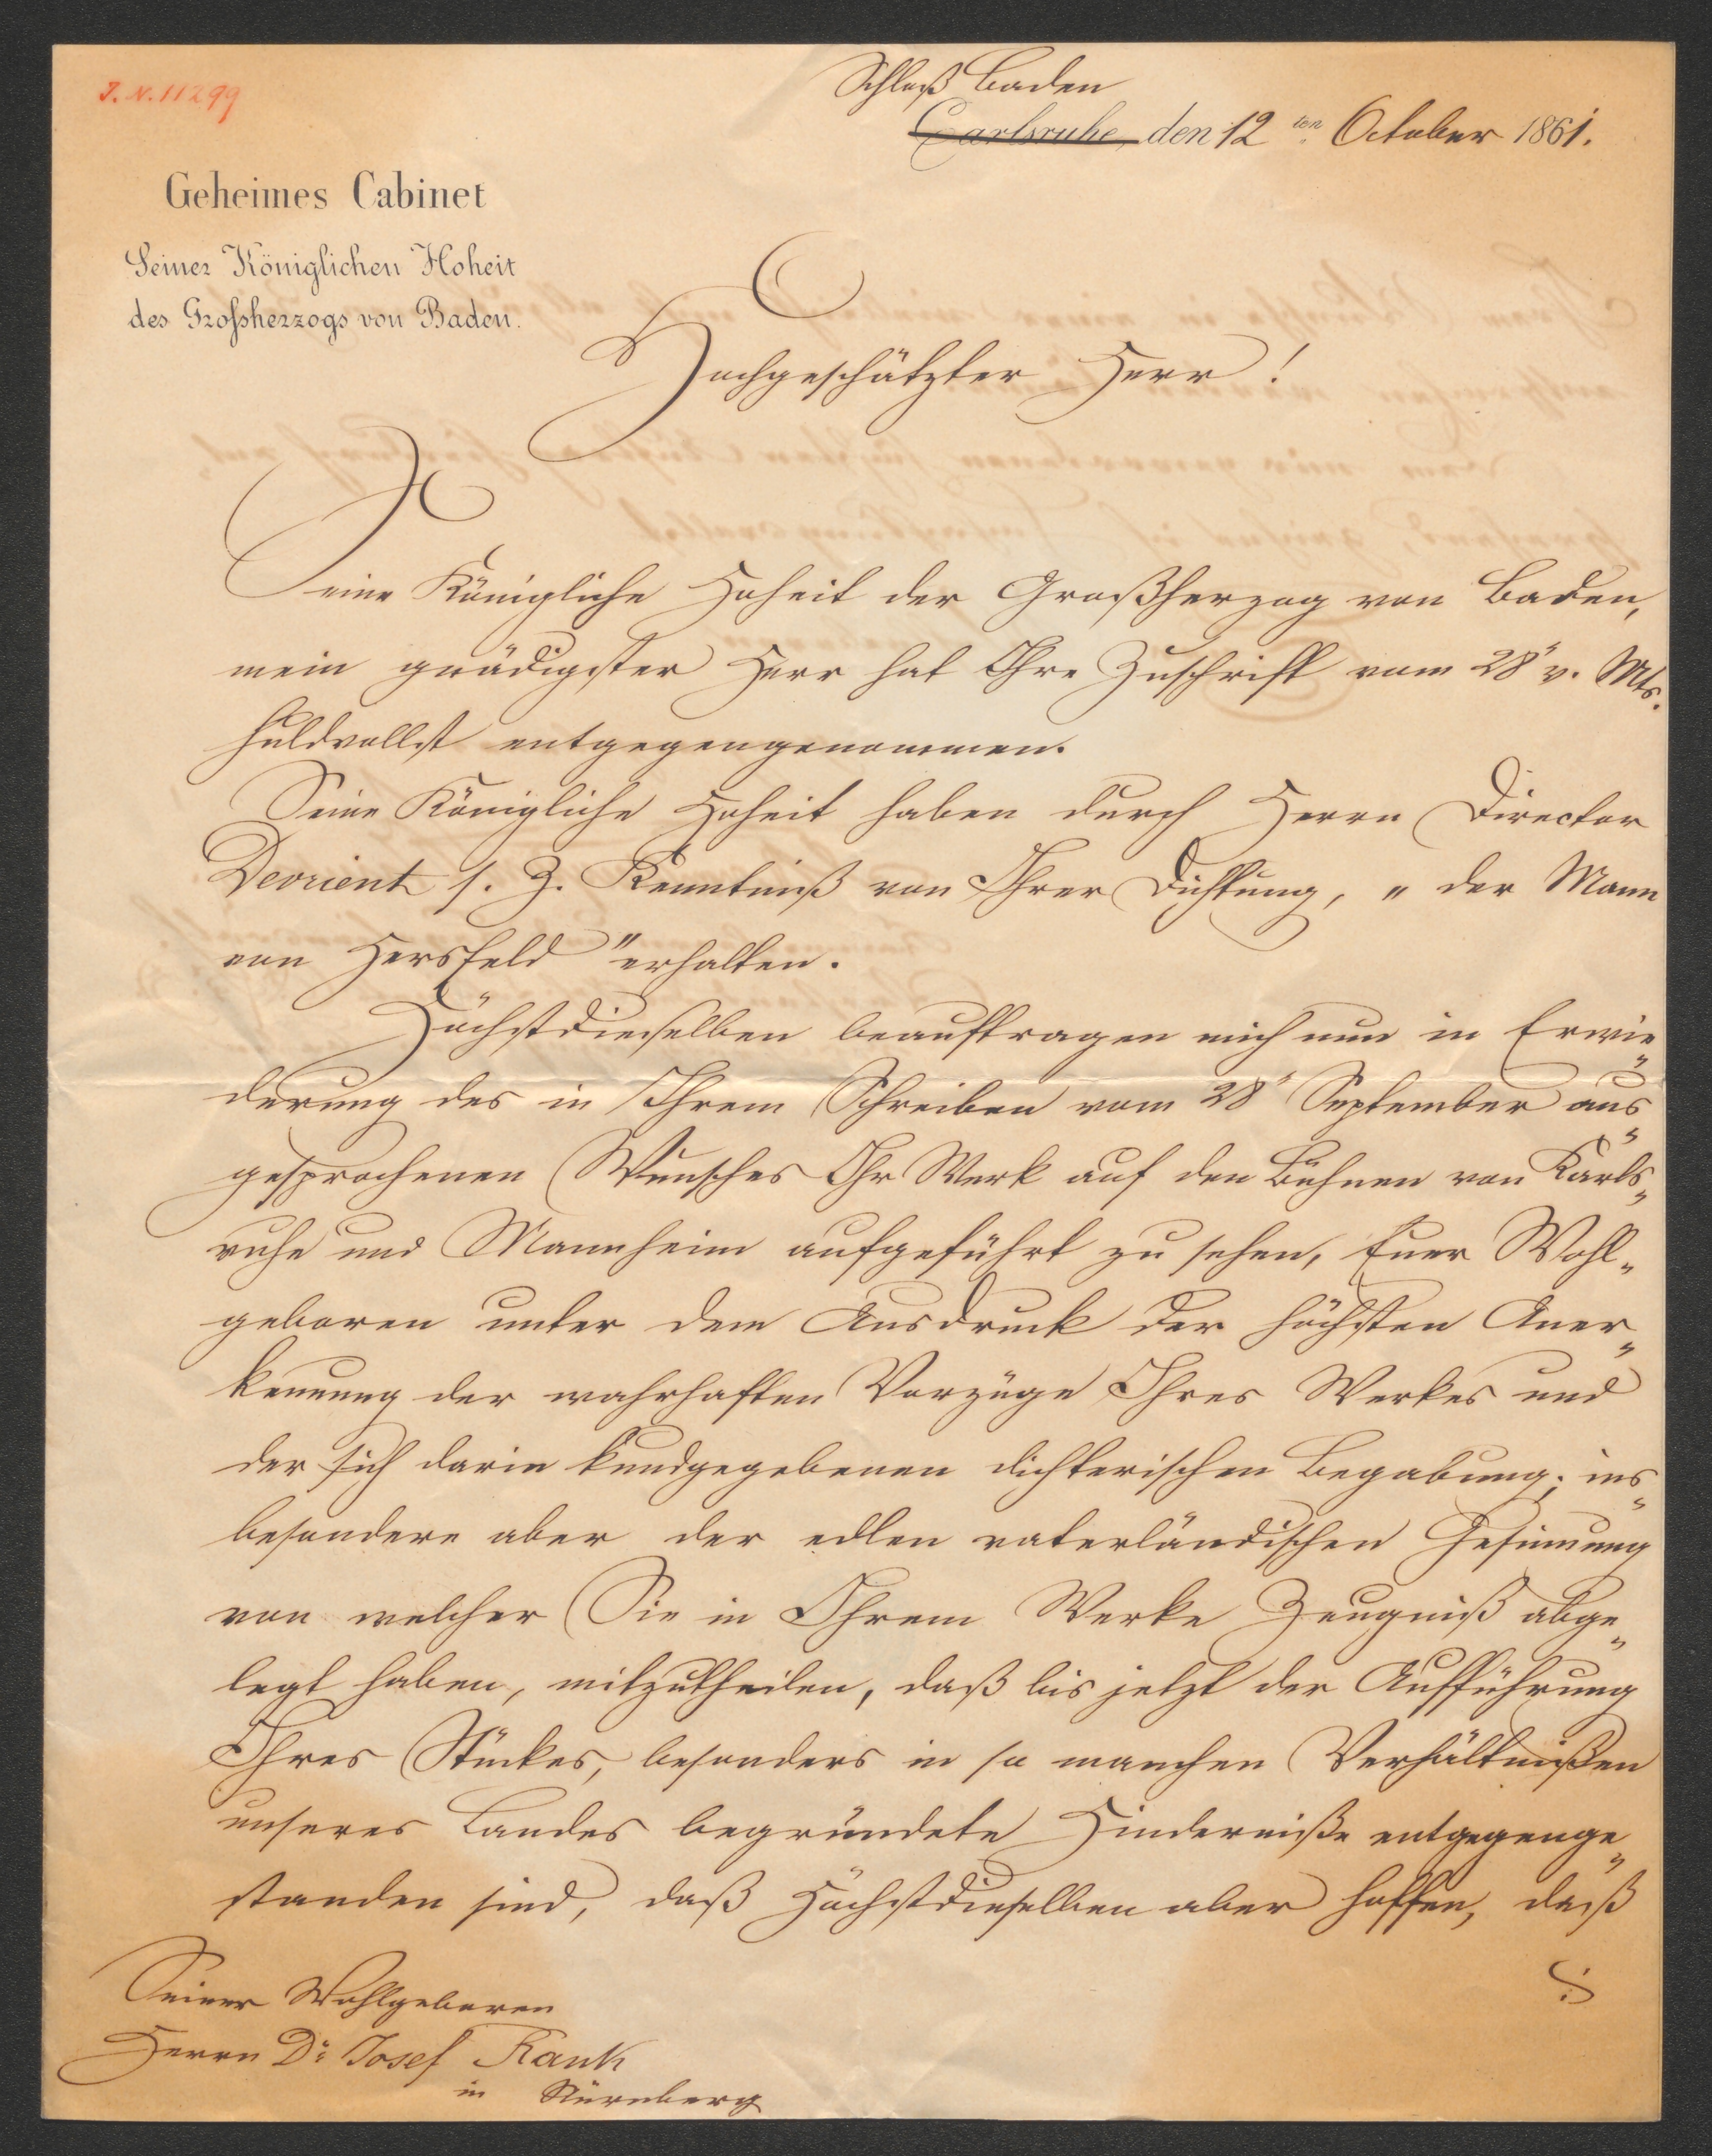 J. N. 11299
Schloß Baden
Carlsruhe, den 12ten October 1861.
Geheimes Cabinet
Seiner Königlichen Hoheit
des Grossherzogs von Baden.
Hochgeschätzter Herr!
Seine Königliche Hoheit der Großherzog von Baden,
mein gnädigster Herr hat Ihre Zuschrift vom 28" v. Mts.
huldvollst entgegengenommen.
Seine Königliche Hoheit haben durch Herrn Director
Devrient s. Z. Kenntniß von Ihrer Dichtung, „der Mann
von Hersfeld" erhalten.
Höchstdieselben beauftragen mich nun in Erwie„
derung des in Ihrem Schreiben vom 28" September aus„
gesprochenen Wunsches Ihr Werk auf den Bühnen von Karls„
ruhe und Mannheim aufgeführt zu sehen, Euer Wohl„
geboren unter dem Ausdruck der höchsten Aner„
kennung der wahrhaften Vorzüge Ihres Werkes und
der sich darin kundgegebenen dichterischen Begabung, ins„
besondere aber der edlen vaterländischen Gesinnung
von welcher Sie in Ihrem Werke Zeugniß abge„
legt haben, mitzutheilen, daß bis jetzt der Aufführung
Ihres Stückes, besonders in so manchen Verhältnißen
unseres Landes begründete Hinderniße entgegenge„
standen sind, daß Höchstdieselben aber hoffen, daß
Seiner Wohlgeboren
Herrn Dr. Josef Rank
in Nürnberg